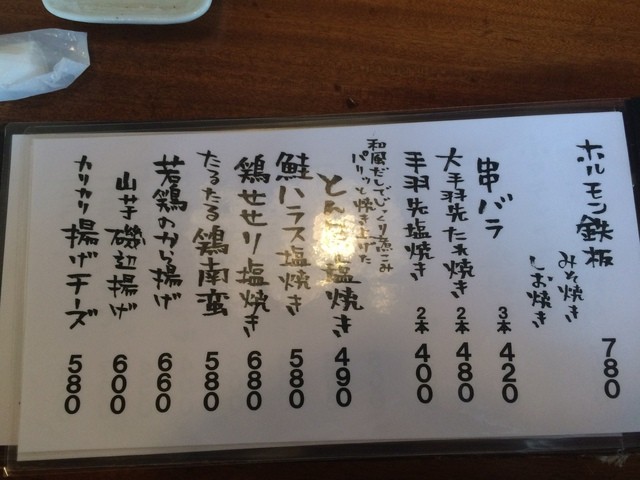 ホルモン鉄板 780
みそ焼き
しお焼き
串バラ 3本 420
大手羽先たれ焼き 2本 480
手羽先塩焼き 2本 400
和風だしでじっくり煮こみ
パリッと焼き上げた
とん 塩焼き 490
鮭ハラス塩焼き 580
鶏せせり塩焼き 680
たるたる鶏南蛮 580
若鶏のから揚げ 660
山芋磯辺揚げ 600
カリカリ揚げチーズ 580